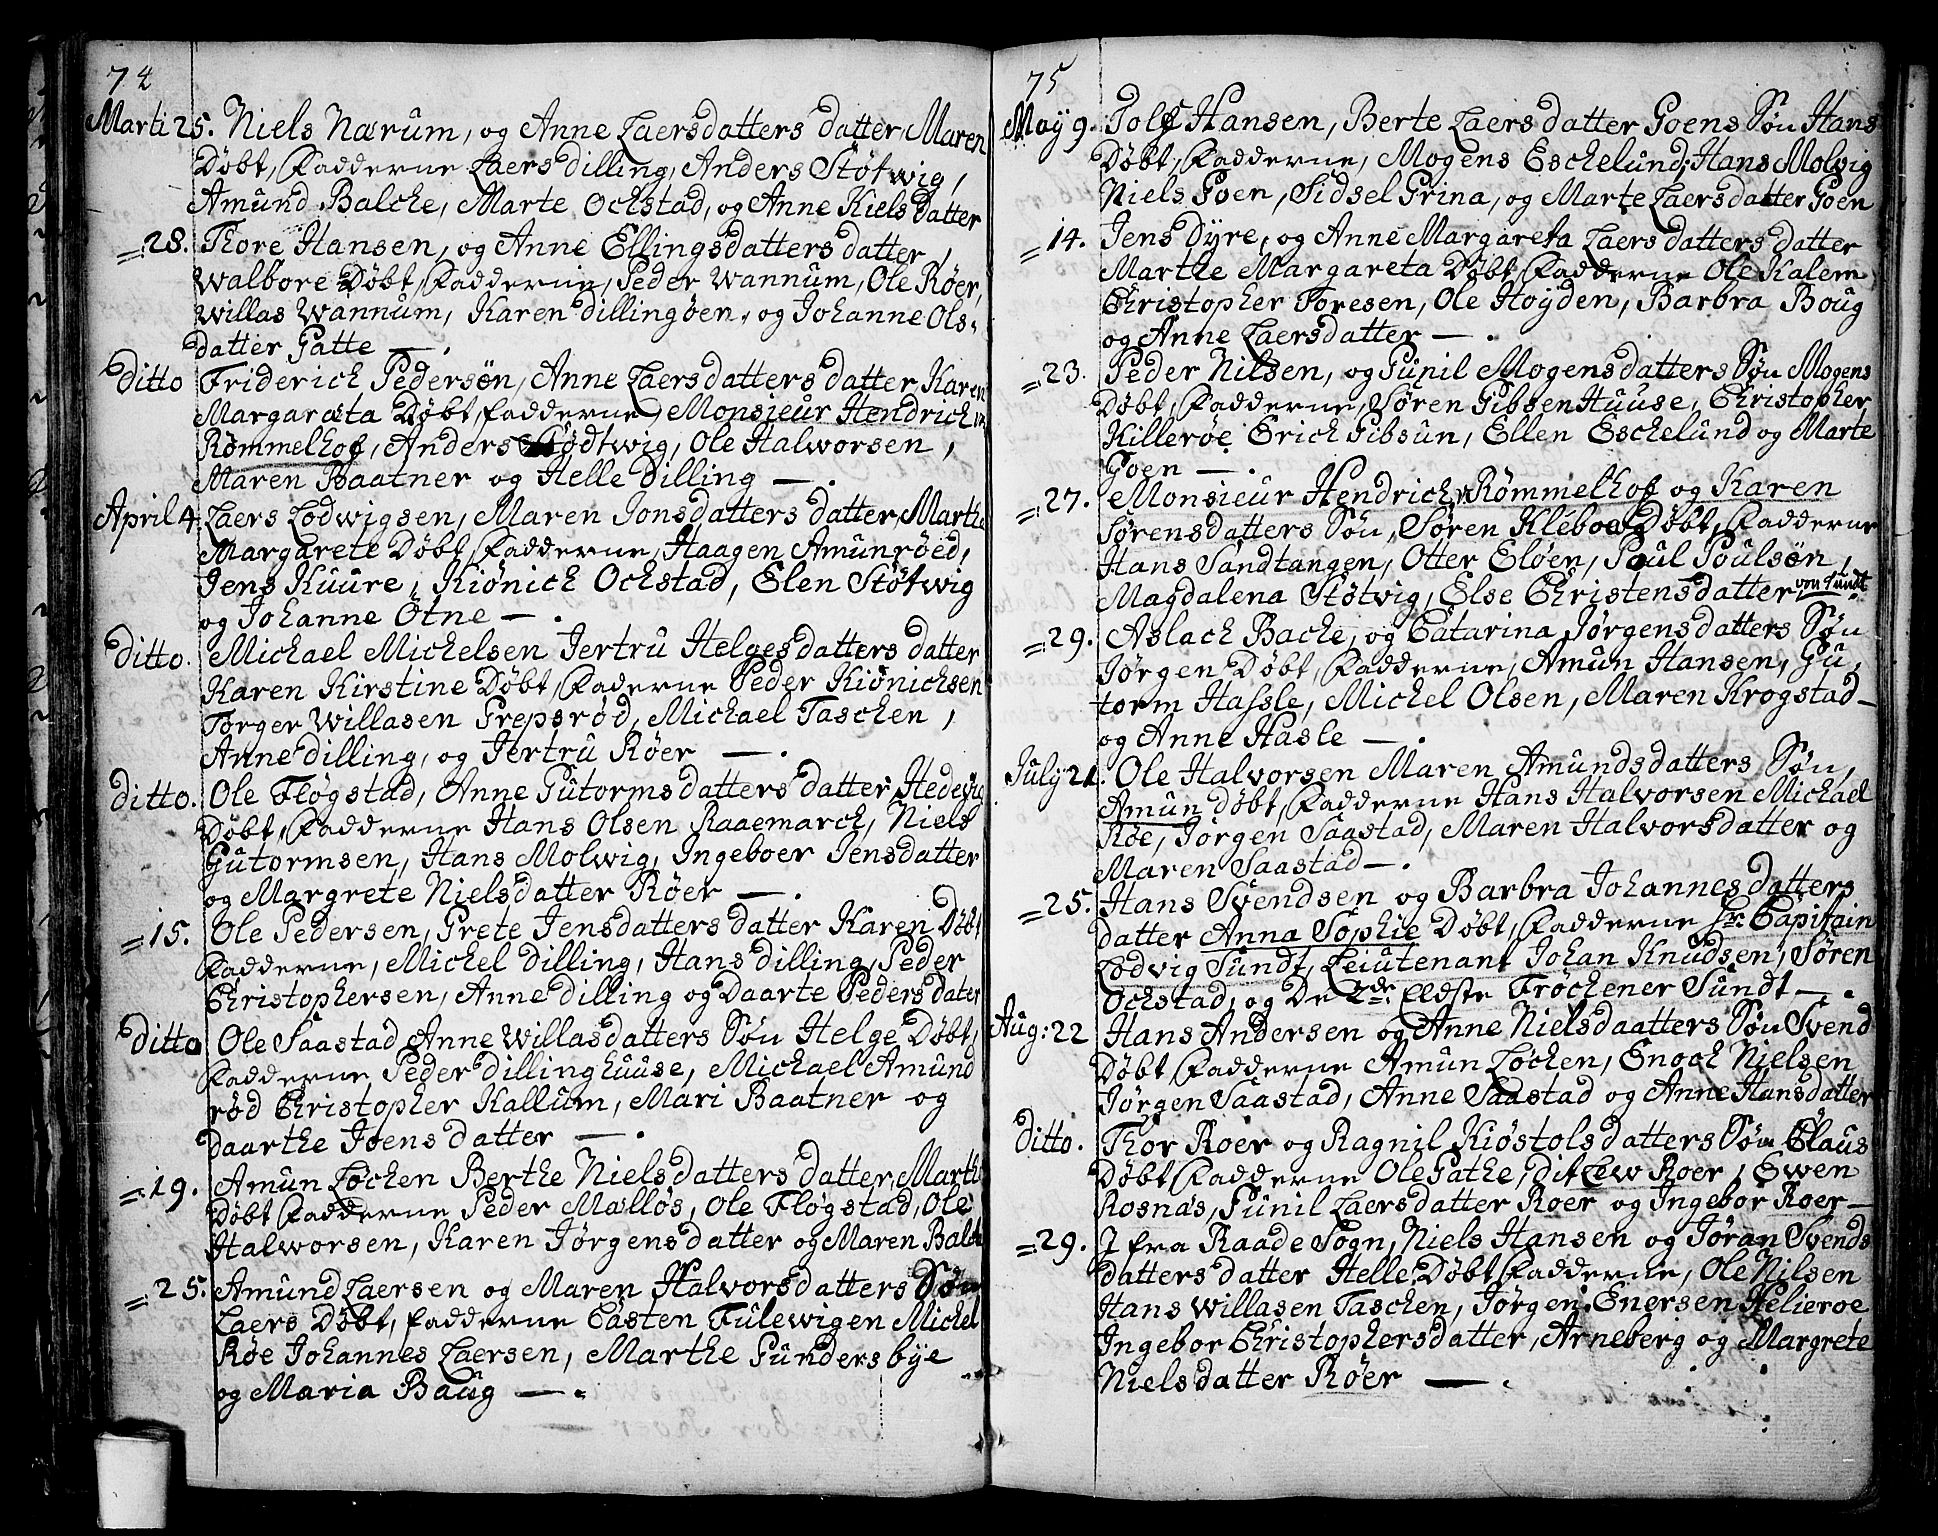 74
Marti 25. Niels Nærum, og Anne Laersdatters datter, Maren
Døbt, Fadderne Laers Dilling, Anders Støtwig,
Amund Balche, Marte Ochstad, og Anne Kiels datter
= 28. Thore Hansen, og Anne Ellingsdatters datter,
Walbore Døbt, Fadderne, Peder Wannum, Ole Røer,
Willas Wannum, Karen Dillingøen, og Johanne Ols-
datter Gatte — .
Ditto Friderich Pedersøn, Anne Laersdatters datter, Karen
Margaræta Døbt, fadderne, Monsieur Hendrich
Rømmelhof, Anders Stødtwig, Ole Halworsen,
Maren Baatner og Helle Dilling — .
April 4. Laers Lodwigsen, Maren Jonsdatters datter, Marthe
Margarete Døbt, Fadderne, Haagen Amunrøed,
Jens Kuure, Kiønich Ochstad, Elen Støtwig
og Johanne Otne — .
Ditto. Michael Michelsen Jertru Helgesdatters datter
Karen Kirstine Døbt, Faderne Peder Kiønichsen
Torger Willasen Grepsrød, Michael Taschen,
Anne Dilling, og Jertru Røer — .
Ditto. Ole Fløgstad, Anne Gutormsdatters datter, Hedewig
Døbt, Fadderne Hans Olsen Raaemarch, Niels
Gutormsen, Hans Molwig, Ingeboer Jensdatter
og Margrete Nielsdatter Røer — .
= 15. Ole Pedersen, Grete Jensdatters datter Karen Døbt
Fadderne, Michel Dilling, Hans Dilling, Peder
Christophersen, Anne Dilling og Daarte Peders dater
Ditto Ole Saastad Anne Willasdatters Søn Helge Døbt,
Fadderne Peder Dillinghuuse, Michael Amund
rød Christopher Kallum, Mari Baatner og
Daarthe Joens datter — .
= 19. Amun Løchen Berthe Nielsdatters datter, Marthe
Døbt Fadderne Peder Mælløs, Ole Fløgstad, Ole
Halworsen, Karen Jørgensdatter og Maren Balch
= 25. Amund Laersen og Maren Halvorsdatters Søn
Laers Døbt, fadderne Casten Fulewigen Michel
Røe Johannes Laersen, Marthe Gundersbye
og Maria Baug — .
75
May 9. Tolf Hansen, Berte Laers datter Goens Søn Hans
Døbt, Fadderne, Mogens Eschelund, Hans Molvig
Niels Goen, Sidsel Grina, og Marte Laersdatter Goen
= 14. Jens Dyre, og Anne Margareta Laersdatters datter
Marthe Margareta Døbt, Fadderne Ole Kalem
Christopher Toresen, Ole Høyden, Barbra Boug
og Anne Laersdatter — .
= 23. Peder Nilsen, og Gunil Mogensdatters Søn Mogens
Døbt, Fadderne, Søren Gibsen Huuse, Christopher
Killerøe Erich Gibsun, Ellen Eschelund og Marte
Goen — .
= 27. Monsieur Hendrich Rømmelhof og Karen
Sørensdatters Søn, Søren Klebow Døbt, Fadderne
Hans Sandtangen, Otter Eløen, Poul Poulsøn,
Magdalena Støtvig, Else Christensdatter von Sundt.
= 29. Aslach Bache, og Catarina Jørgensdatters Søn
Jørgen Døbt, Fadderne, Amun Hansen, Gu-
torm Hassle, Michel Olsen, Maren Krogstad
og Anne Hasle — .
July 21. Ole Halvorsen Maren Amundsdatters Søn,
Amun Døbt, Fadderne Hans Halvorsen Michael
Røe, Jørgen Saastad, Maren Halvorsdatter og
Maren Saastad — .
= 25. Hans Svendsen og Barbra Johannesdatters
datter Anna Sophie Døbt, Fadderne Hr. Capitain
Lodvig Sundt, Leiutenant Johan Knudsen, Søren
Ochstad, og De 2de Eldste Frøchener Sundt — .
Aug: 22 Hans Andersen og Anne Nielsdaatters Søn Svend
Døbt, Fadderne Amun Løchen, Enoch Nielsen
Jørgen Saastad, Anne Saastad og Anne Hansdatter
Ditto. Thor Roer og Ragnil Kiøstolsdatters Søn Claus
Døbt, Fadderne Ole Gathe, Ditlew Roer, Ewen
Rosnæs, Gunil Laersdatter Roer og Ingebor Roer —
= 29. J fra Raade Sogn, Niels Hansen og Jøran Svends
datters datter Helle Døbt, Fadderne, Ole Nilsen
Hans Willasen Taschen, Jørgen Enersen Helieroe
Ingebor Christophersdatter, Arneberg og Margrete
Nielsdatter Røer — .